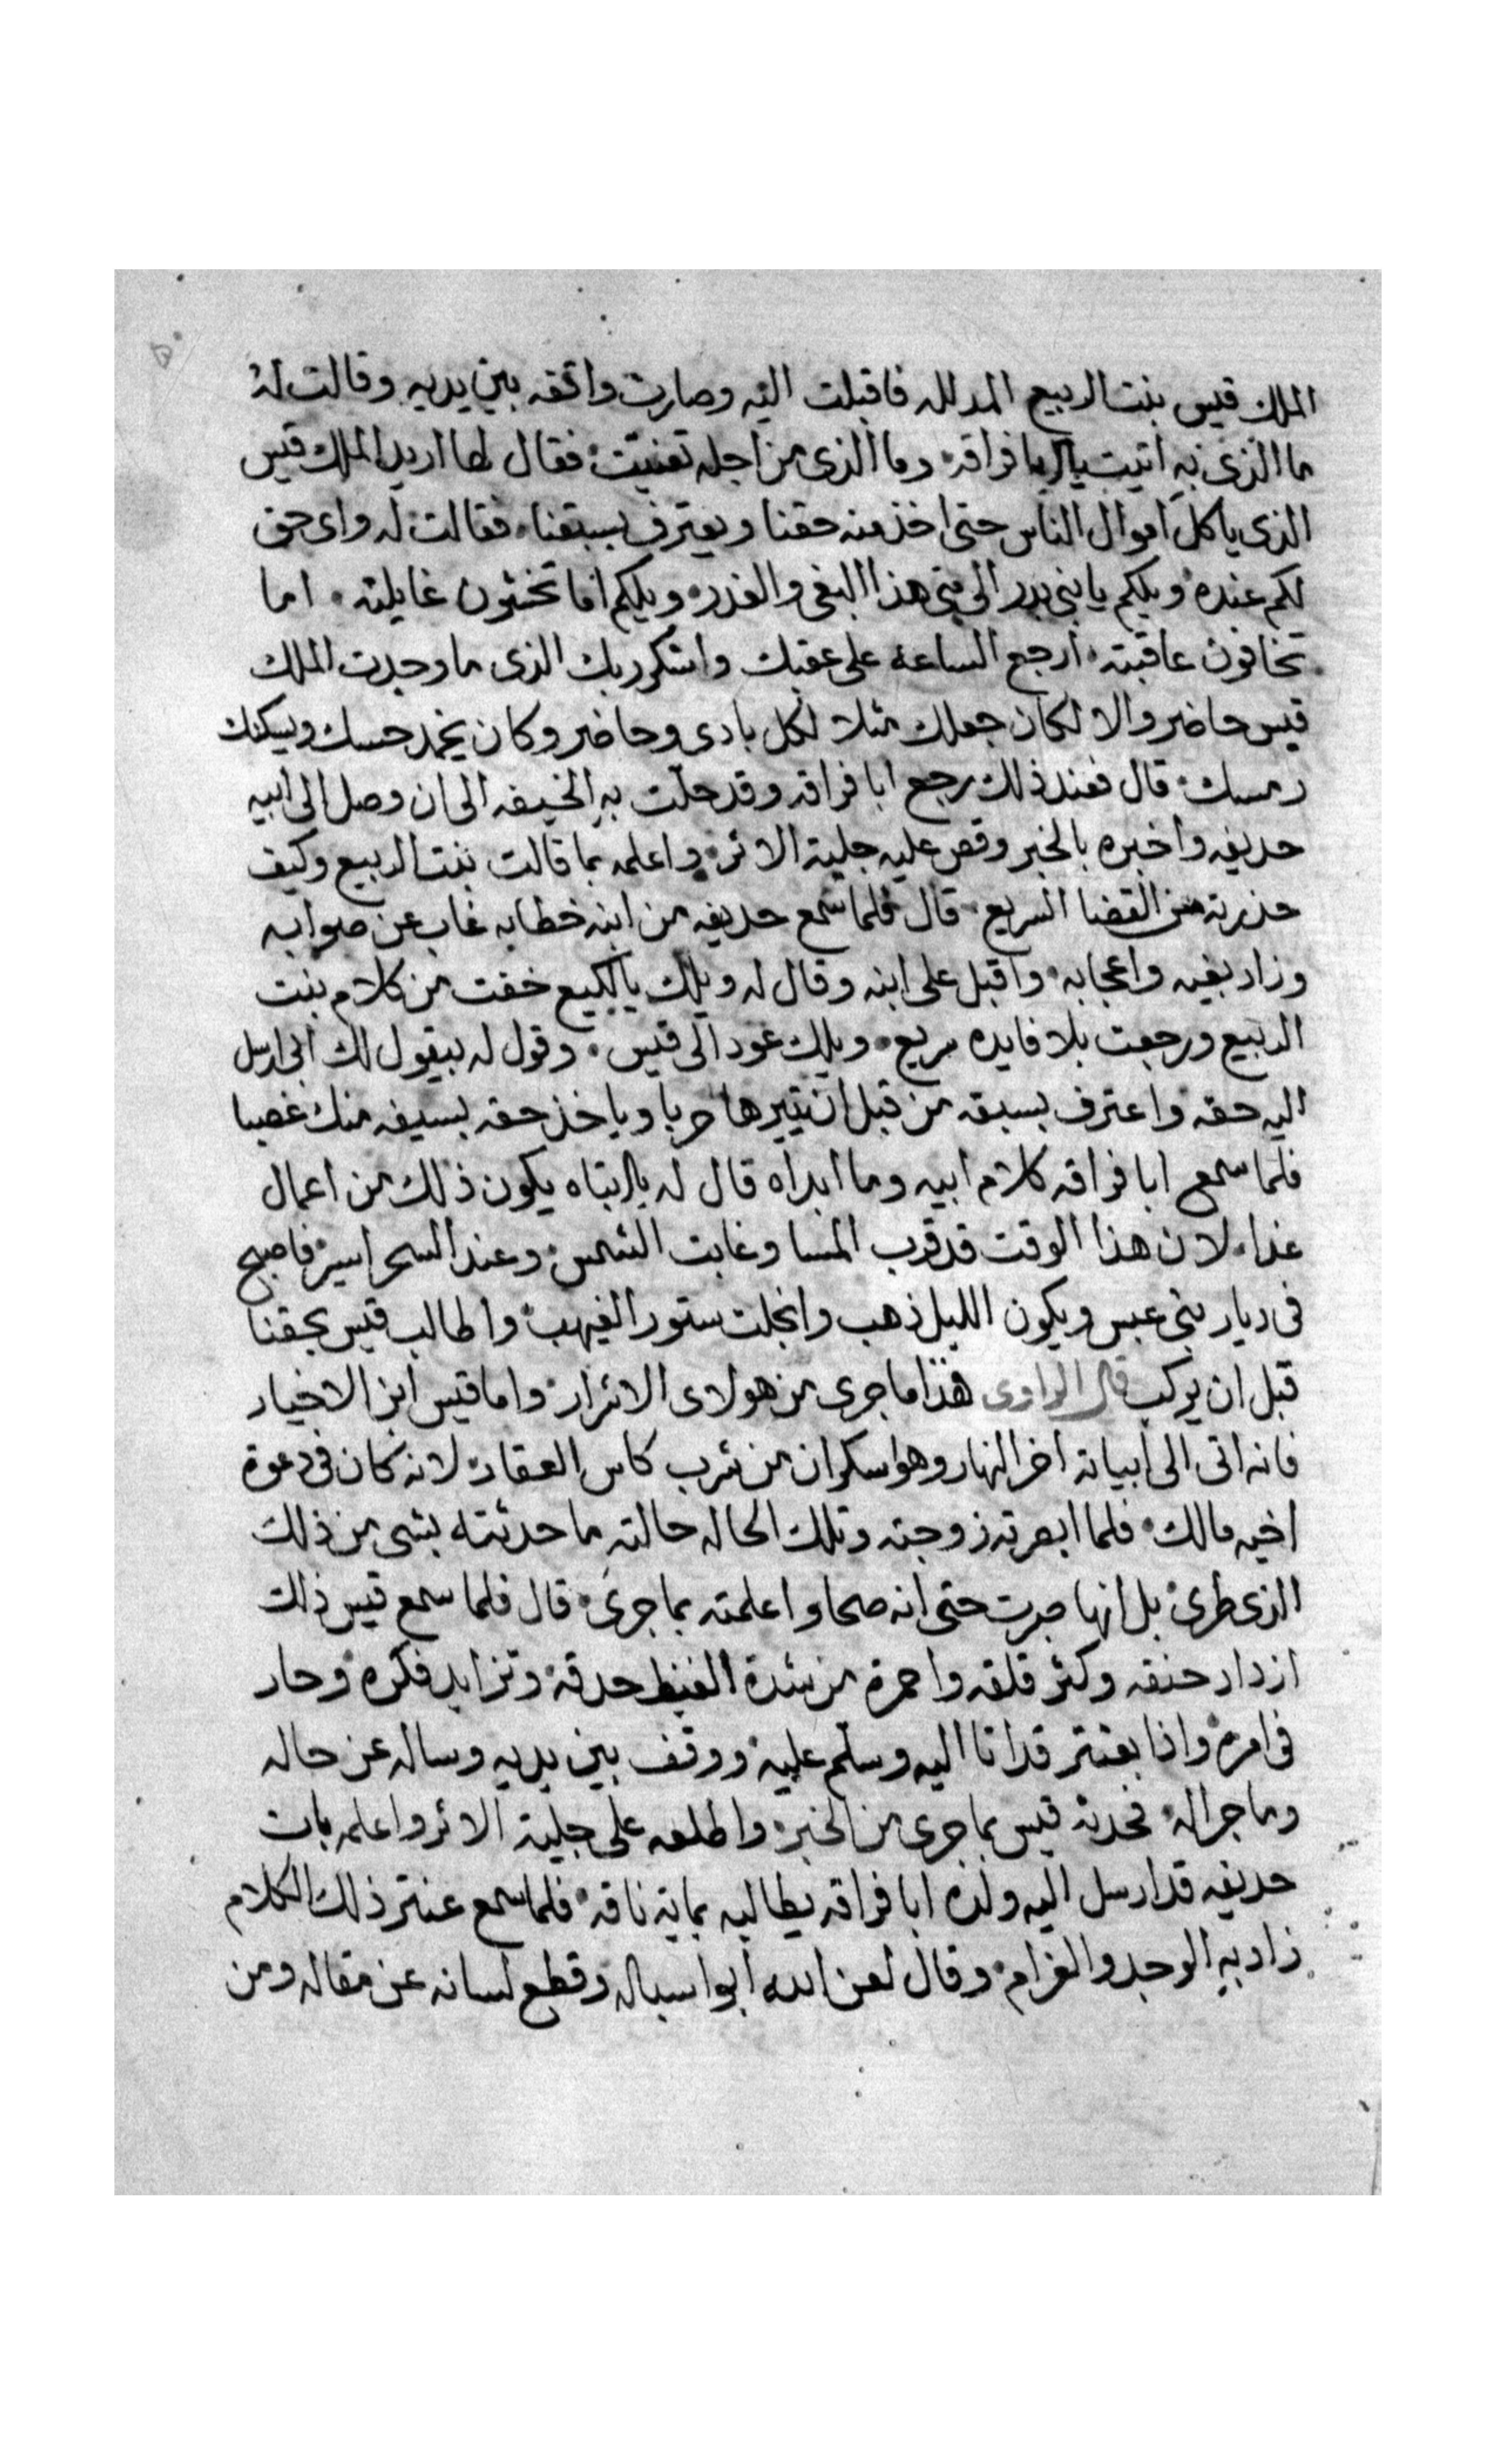 الملك قيس بنت الربيع المدلله فاقبلت اليه وصارت واقفه بين يديه وقالت له
ما الذى به اتيت يابا فراقه وما الذى من اجله تعنيت فقال لها اريد الملك قيس
الذى ياكل اموال الناس حتى اخذ منه حقنا ويعترف بسبقنا فقالت له واى حق
لكم عنده ويلكم يا بنى بدر الى متى هذا البغى والغدر ويلكم اما تخشون غايلته اما
تخافون عاقبته ارجع الساعه على عقبك واشكر ربك الذى ما وجدت الملك
قيس حاضر والا لكان جعلك مثلا لكل بادى وحاضر وكان يخمد حسك ويسكنك
رمسك قال فعند ذلك رجع ابا فراقه وقد حلت به الخيفه الى ان وصل الى ابيه
حديفه واخبره بالخبر وقص عليه جلية الاثر واعلمه بما قالت بنت الربيع وكيف
حذرته من القضا السريع قال فلما سمع حديفه من ابنه خطابه غاب عن صوابه
وزاد بغيه واعجابه واقبل على ابنه وقال له ويلك يالكيع خفت من كلام بنت
الربيع ورجعت بلا فايده سريع ويلك عود الى قيس وقول له بيقول لك ابى ارسل
اليه حقه واعترف بسبقه من قبل ان تثيرها حربا وياخذ حقه بسيفه منك غصبا
فلما سمع ابا فراقه كلام ابيه وما ابداه قال له يا ابتاه يكون ذلك من اعمال
غدا لان هذا الوقت قد قرب المسا وغابت الشمس وعند السحر اسير فاصبح
فى ديار بنى عبس ويكون الليل ذهب وانجلت ستور الغيهب واطالب قيس بحقنا
قبل ان يركب قال الراوى هذا ما جرى من هولاى الاشرار واما قيس ابن الاخيار
فانه اتى الى ابياته اخر النهار وهوا سكران من شرب كاس العقار لانه كان فى دعوة
اخيه مالك فلما ابصرته زوجته وتلك الحاله حالته ما حدثته بشى من ذلك
الذى طرى بل انها صبرت حتى انه صحا واعلمته بما جرى قال فلما سمع قيس ذلك
ازداد حنقه وكثر قلقه واحمرة من شدة الغيظ حدقه وتزايد فكره وحار
فى امره واذا بعنتر قد اتا اليه وسلم عليه ووقف بين يديه وساله عن حاله
وما جراله فحدثه قيس بما جرى من الخبر واطلعه على جلية الاثر واعلمه بان
حديفه قد ارسل اليه ولده ابا فراقه يطالبه بماية ناقه فلما سمع عنتر ذلك الكلام
زاد به الوجد والغرام وقال لعن الله ابوا سباله وقطع لسانه عن مقاله ومن